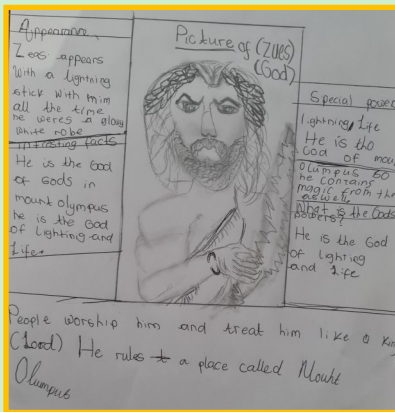 Appearance
Zeas appears
with a lightning
stick with him
all the time
he weres a glowy
white robe
intresting facts
He is the God
of Gods in
mount olympus
he is the God
of lighting and
Life.
Picture of (Zues)
(God)
Special power
Lightning, Life
He is the
God of moun
Olumpus so
he contains
magic from the
aswell
What is the Gods
powers?
He is the God
of lighting
and Life
People worship him and treat him like a Kin
(Lord) He rules a place called Mount
Olumpus